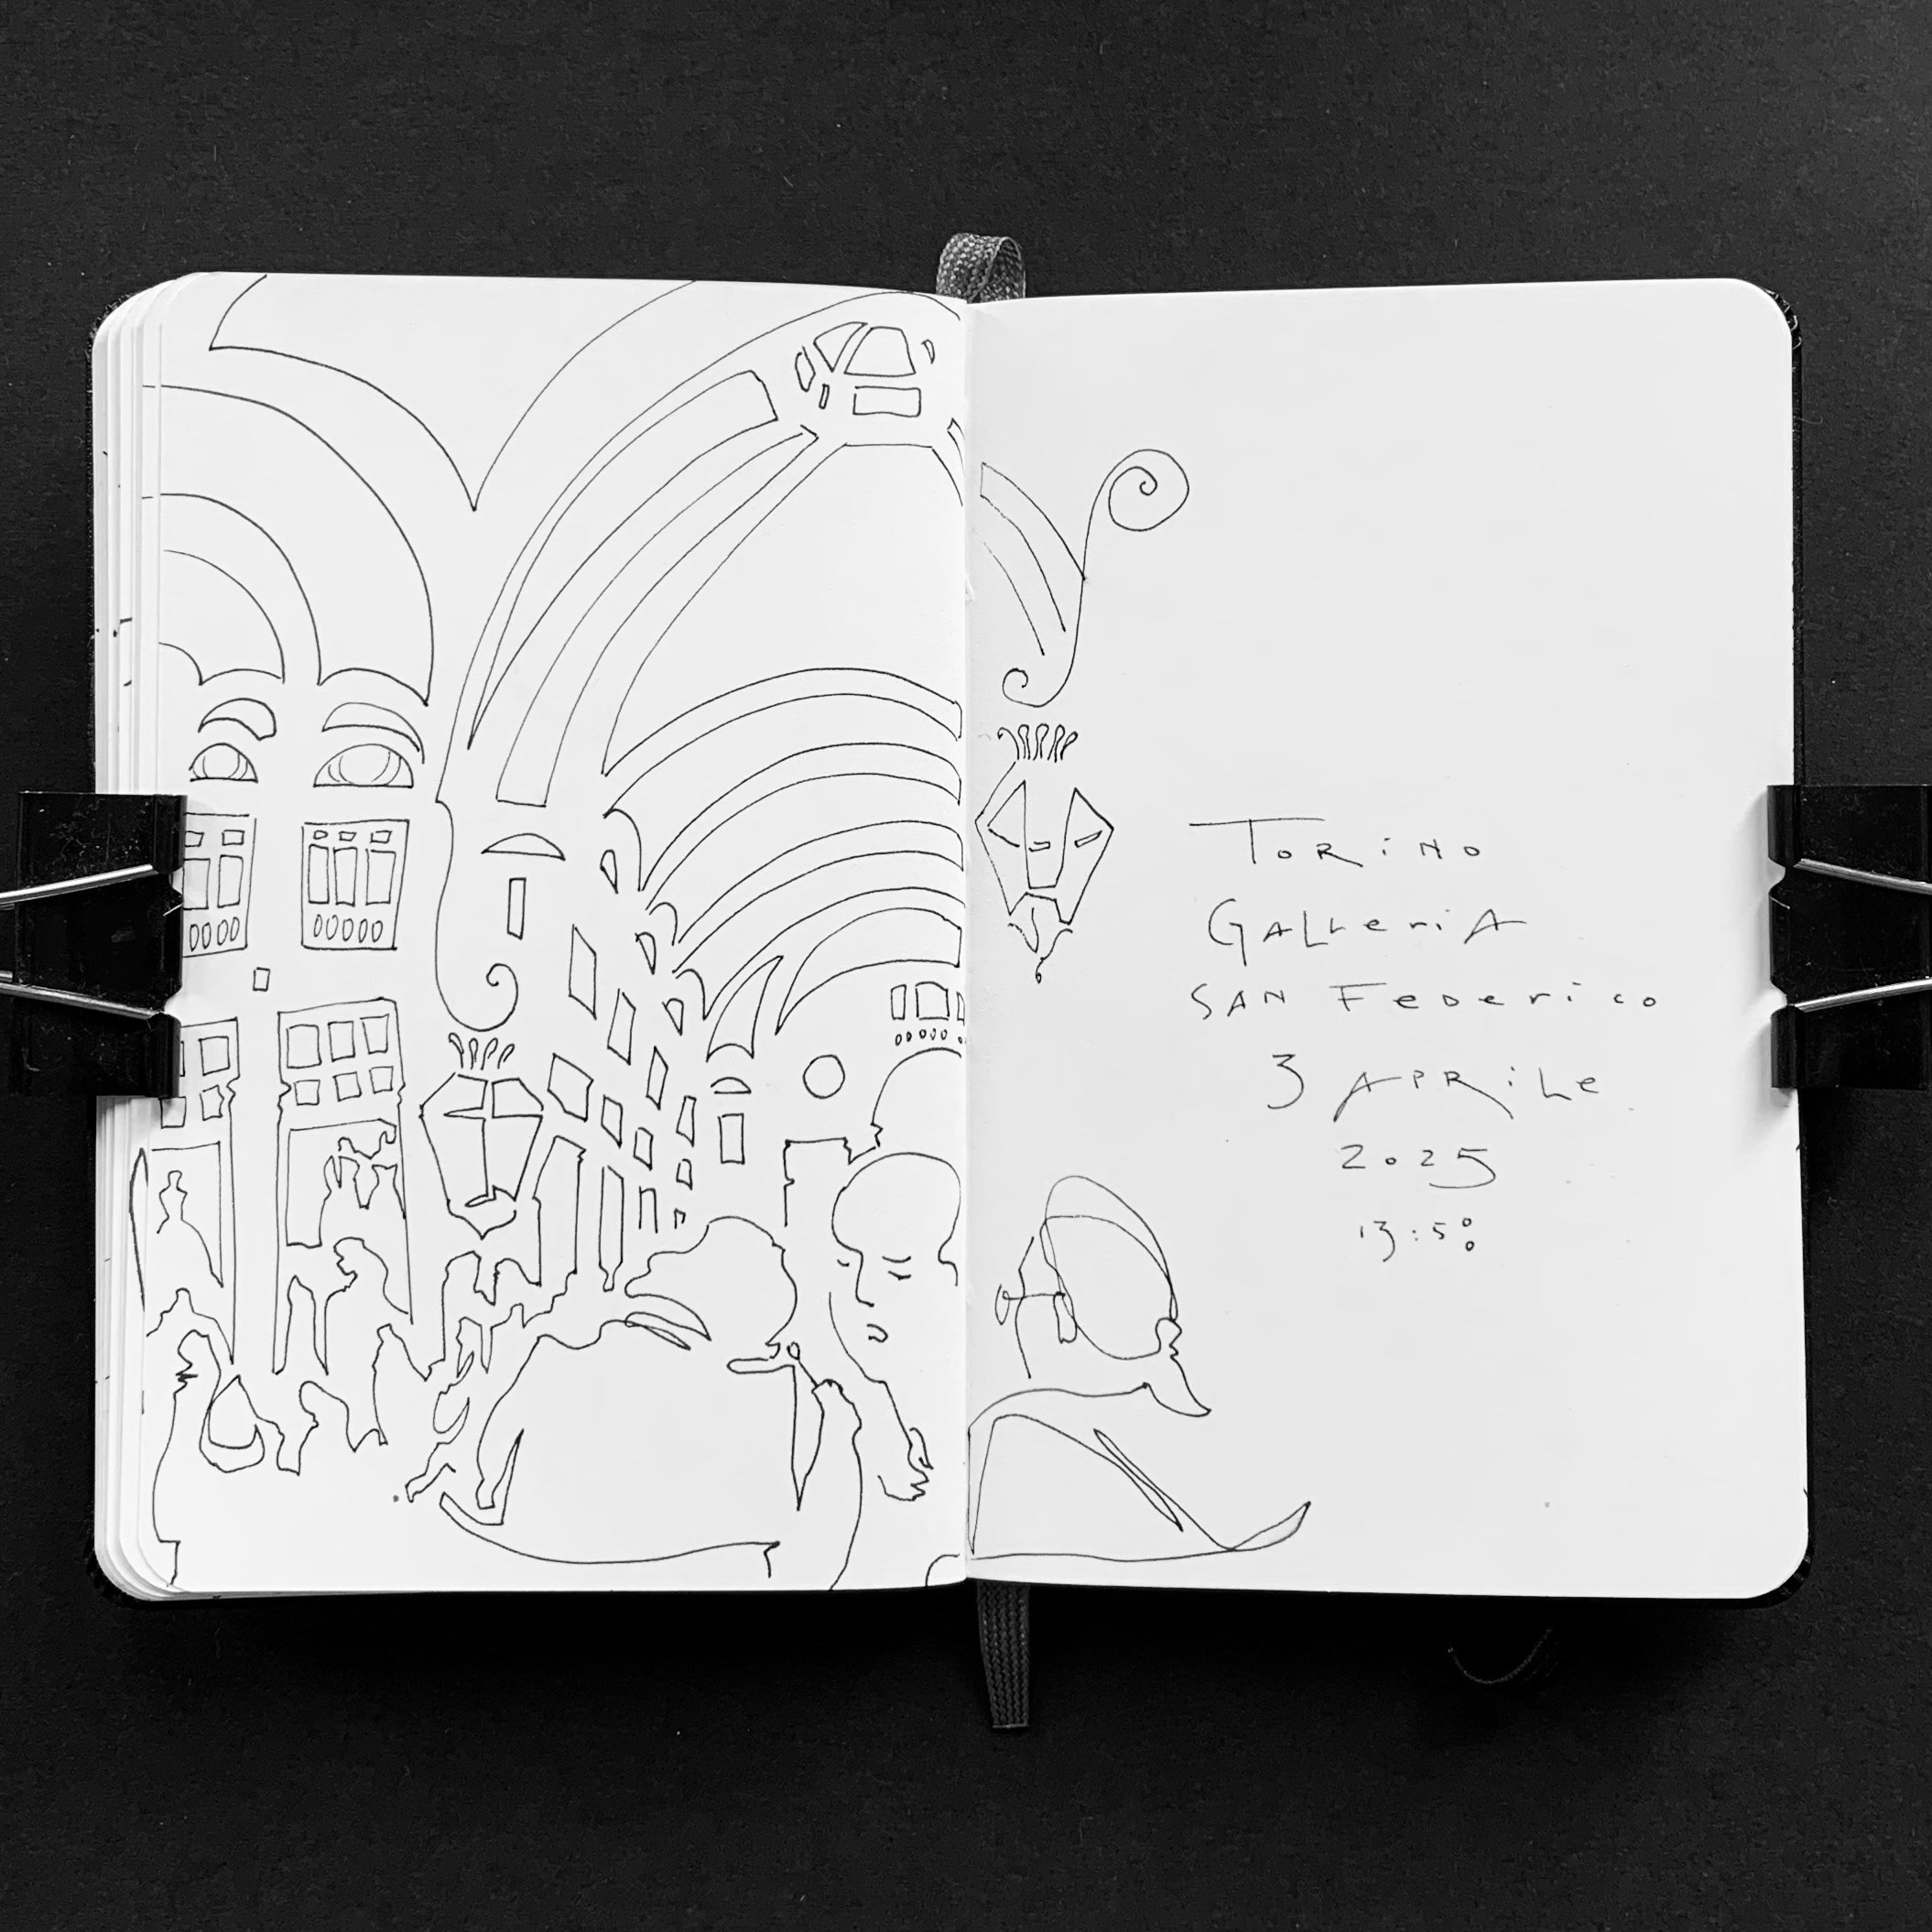 TORiNO
GALLeriA
SAN FeDerico
3 APRiLe
2025
13:58